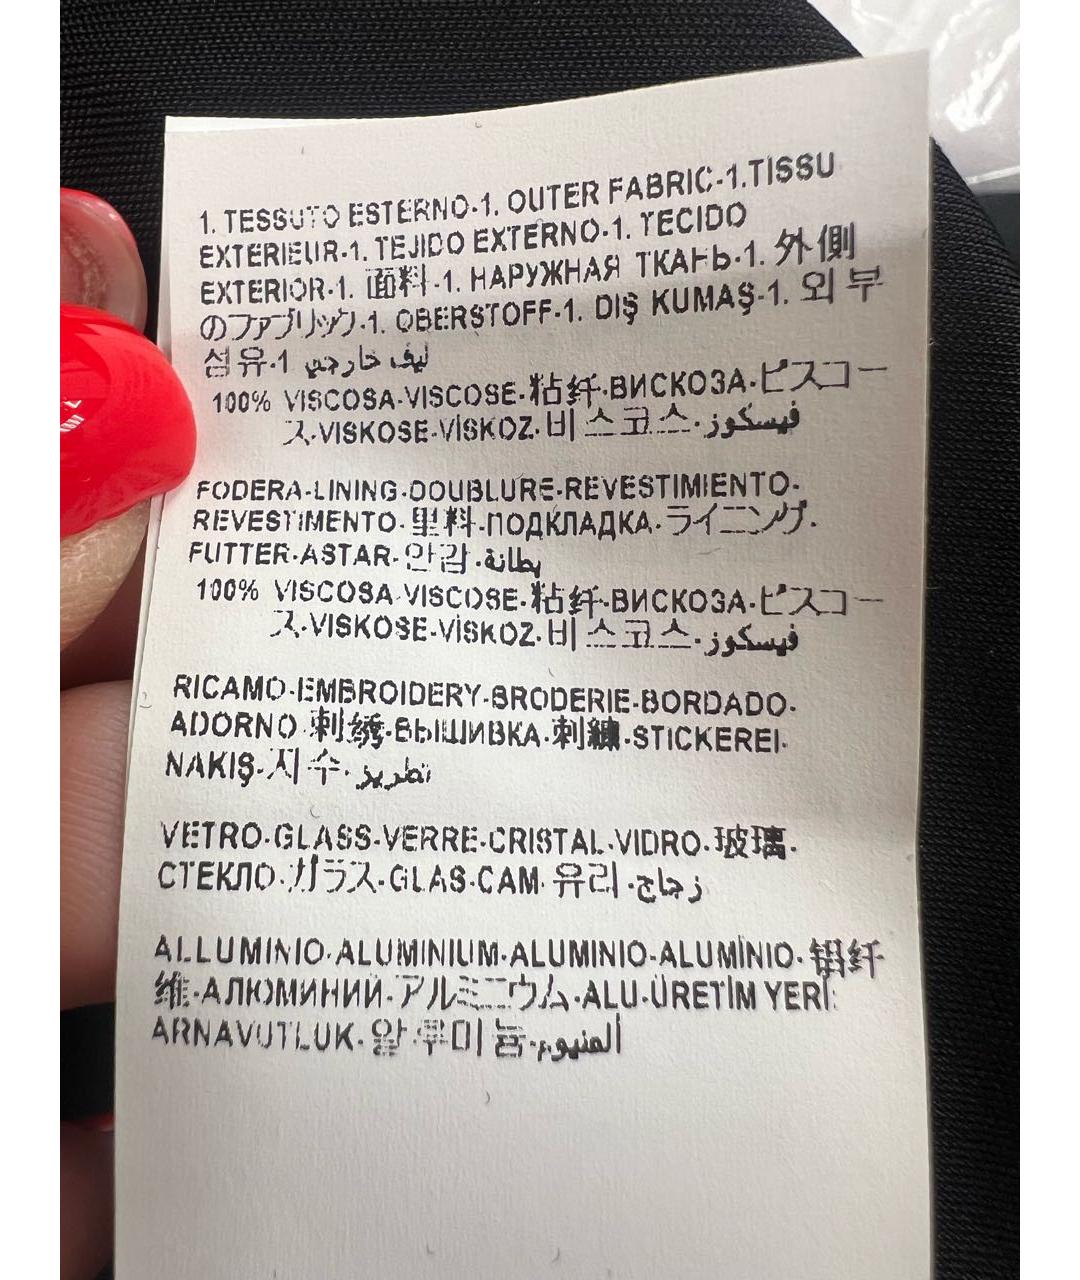 1. TESSUTO ESTERNO·1. OUTER FABRIC·1.TISSU
EXTERIEUR·1. TEJIDO EXTERNO·1. TECIDO
EXTERIOR·1. 面料·1. НАРУЖНАЯ ТКАНЬ·1. 外側
のファブリック·1. OBERSTOFF·1. DIŞ KUMAŞ·1. 외 부
섬유·1 ليف خارجي
100% VISCOSA·VISCOSE·粘纤·ВИСКОЗА·ビスコー
ス·VISKOSE·VİSKOZ·비스코스·فيسكوز
FODERA·LINING·DOUBLURE·REVESTIMIENTO·
REVESTIMENTO·里料·ПОДКЛАДКА·ライニング·
FUTTER·ASTAR·안감·بطانة
100% VISCOSA·VISCOSE·粘纤·ВИСКОЗА·ビスコー
ス·VISKOSE·VİSKOZ·비스코스·فيسكوز
RICAMO·EMBROIDERY·BRODERIE·BORDADO·
ADORNO·刺绣·ВЫШИВКА·刺繍·STICKEREI·
NAKIŞ·자수·تطريز
VETRO·GLASS·VERRE·CRISTAL·VIDRO·玻璃·
СТЕКЛО·ガラス·GLAS·CAM·유리·زجاج
ALLUMINIO·ALUMINIUM·ALUMINIO·ALUMÍNIO·铝纤
维·АЛЮМИНИЙ·アルミニウム·ALU·ÜRETİM YERİ:
ARNAVUTLUK·알루미늄·المنيوم